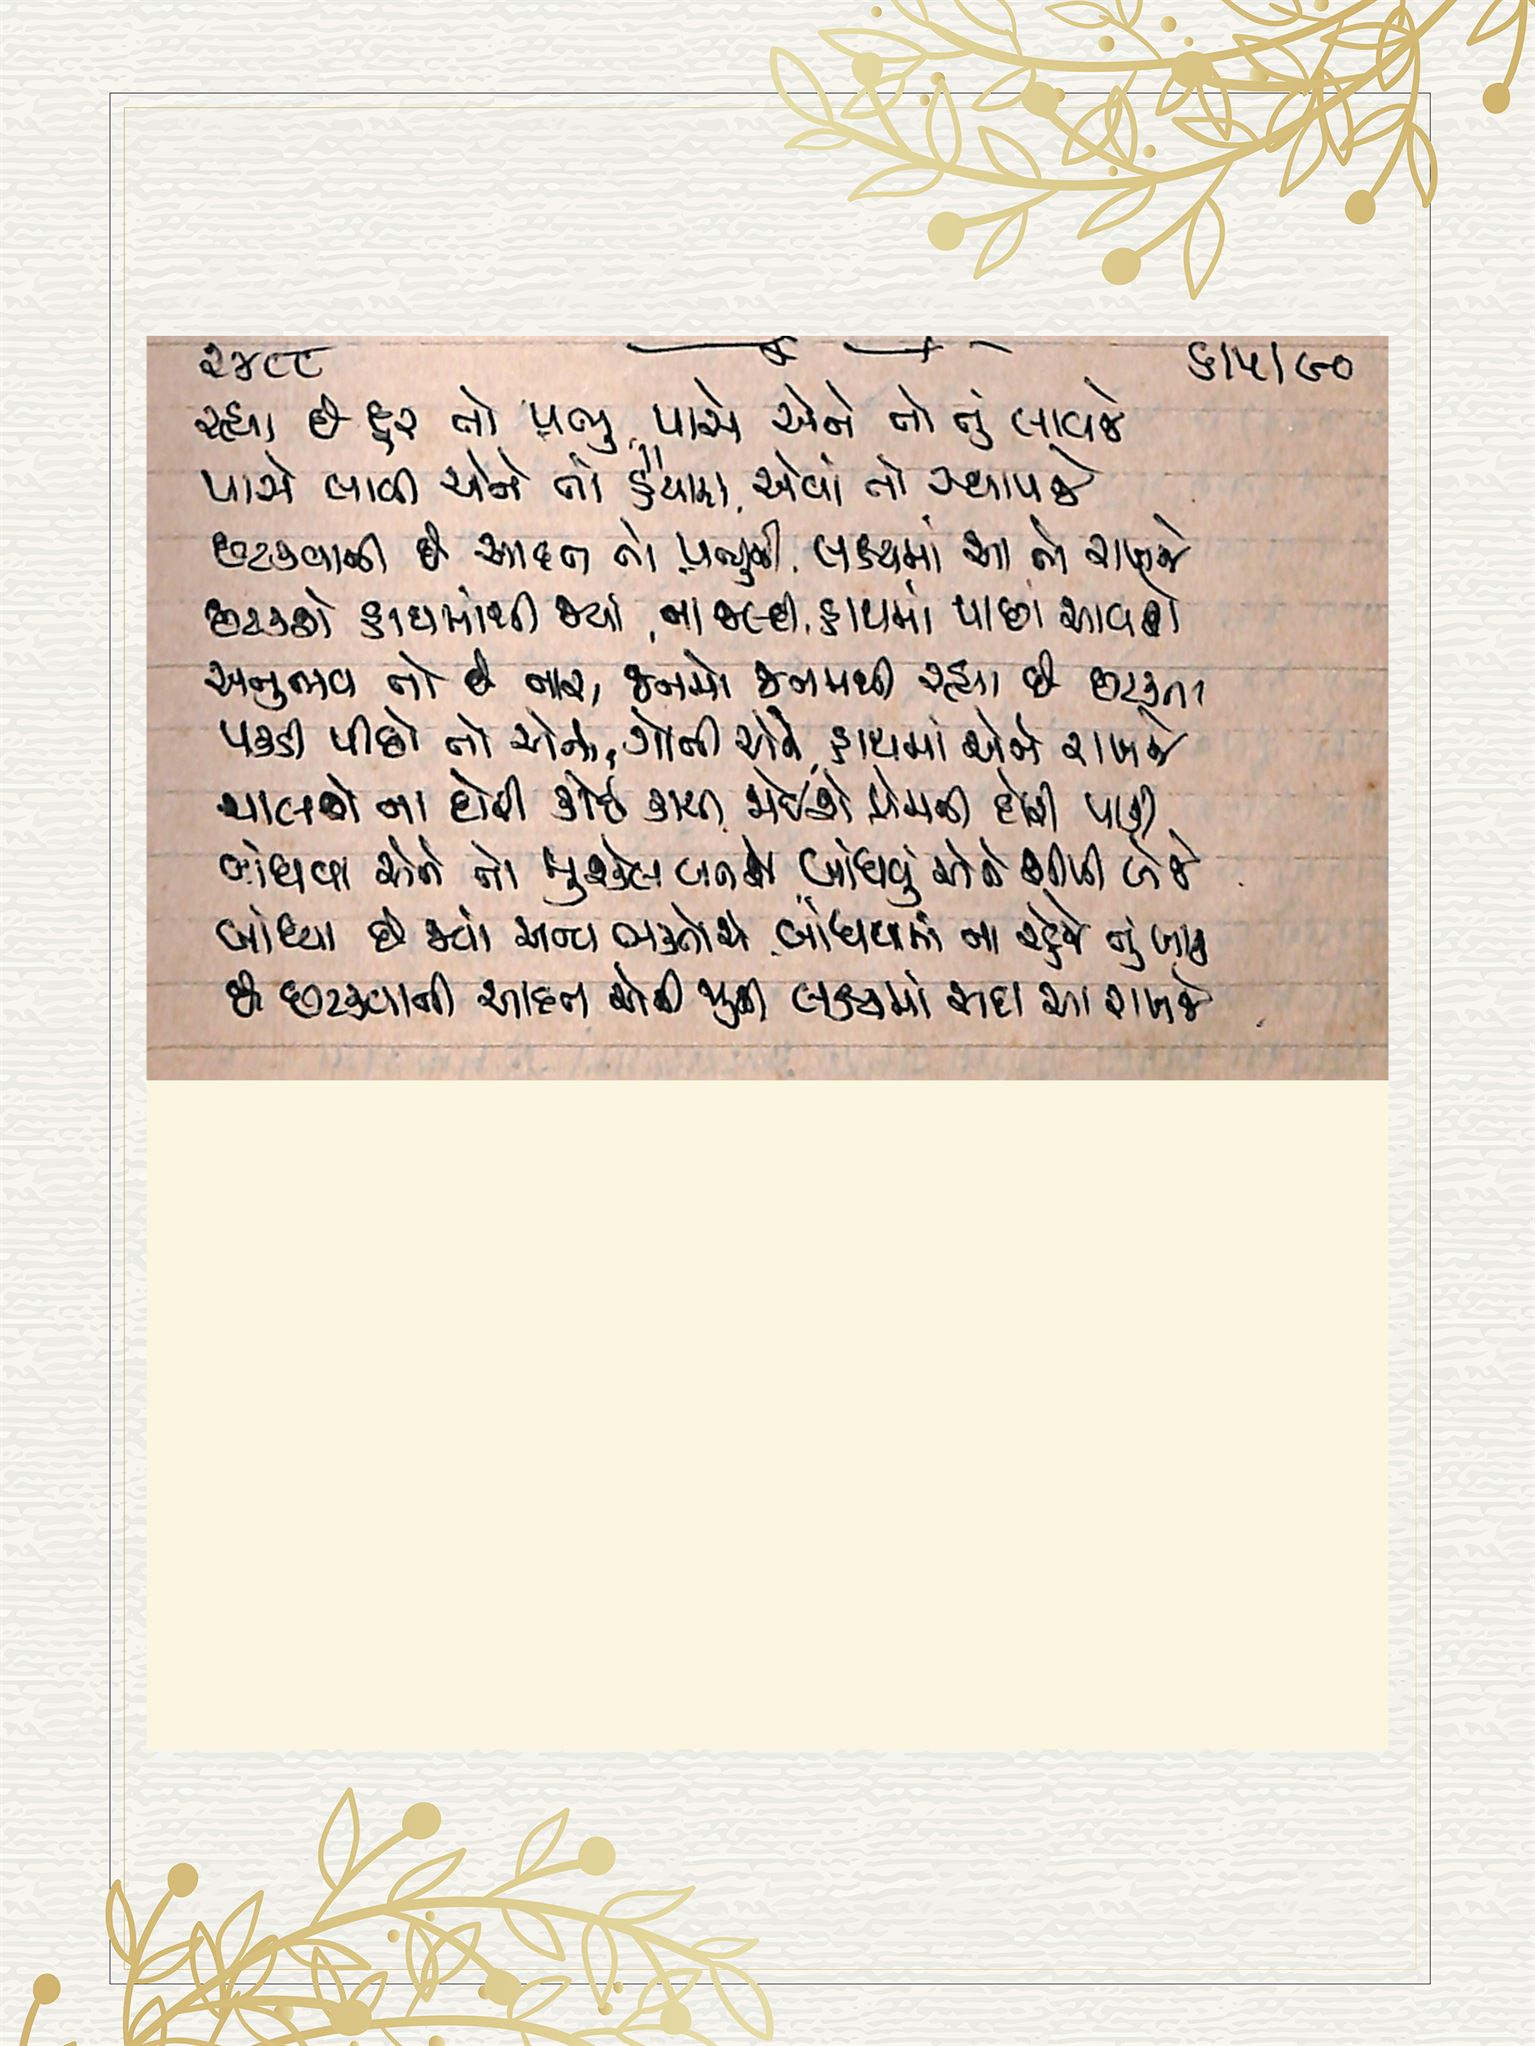 ૨૪૮૮
૬/૫/૯૦
રહ્યા છે દૂર તો પ્રભુ, પાસે એને તો તું લાવજે
પાસે લાવી એને તો હૈયામાં, એવાં તો સ્થાપજે
છટકવાની છે આદત તો પ્રભુની, લક્ષ્યમાં આ તો રાખજે
છટકશે હાથમાંથી જ્યાં, ના જલ્દી હાથમાં પાછા આવશે
અનુભવ તો છે તારા, જનમો જનમથી રહ્યા છે છટકતા
પકડી પીછો તો એનો, ગોતી એને, હાથમાં એને રાખજે
ચાલશે ના દોરી કોઈ કાચી, જોઈશે પ્રેમની દોરી પાકી
બાંધવા એને તો મુશ્કેલ બનશે, બાંધવું એને શીખી લેજે
બાંધ્યા છે જ્યાં અન્ય ભક્તોએ, બાંધવામાં ના રહેજે તું બાકી
છે છટકવાની આદત એની જૂની, લક્ષ્યમાં સદા આ રાખજે